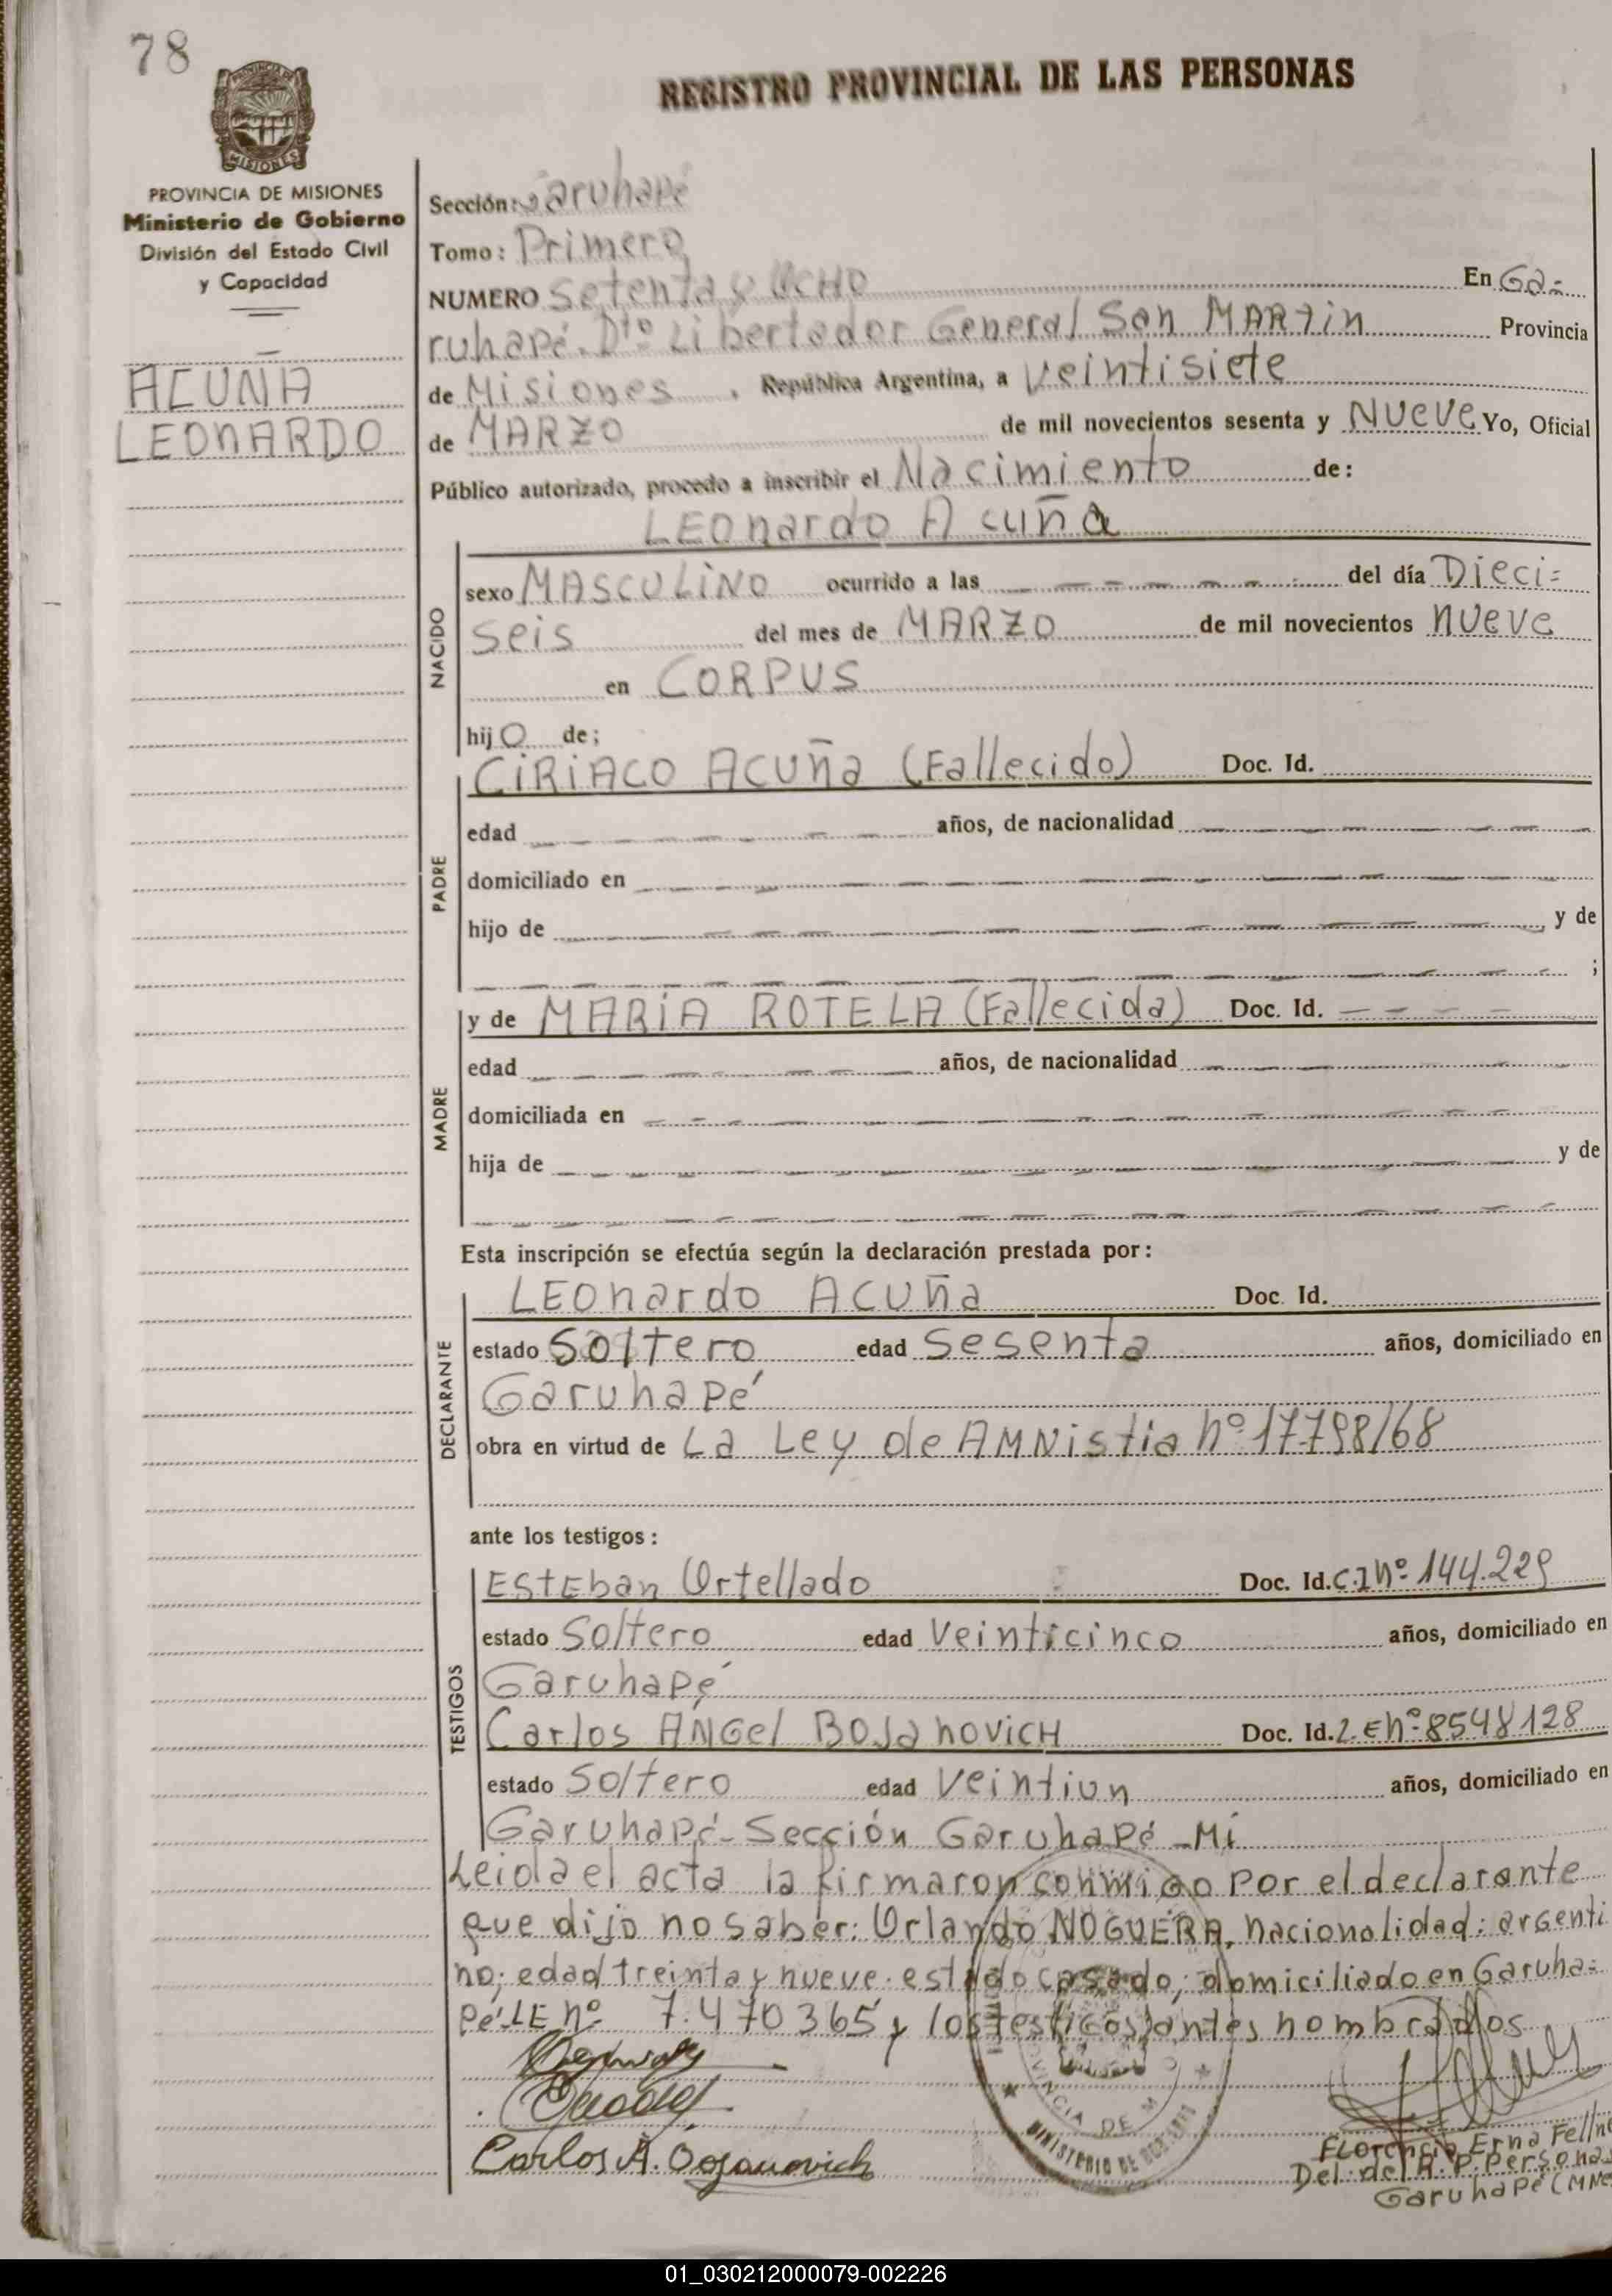 78
REGISTRO PROVINCIAL DE LAS PERSONAS
PROVINCIA DE MISIONES
PROVINCIA DE MISIONES
Ministerio de Gobierno
División del Estado Civil
y Capacidad
ACUÑA
LEONARDO
Sección: Garuhapé
Tomo: Primero
NUMERO Setenta y Ocho En Ga=
ruhapé. Dto Libertador General San MARTIN Provincia
de Misiones, República Argentina, a Veintisiete
de MARZO de mil novecientos sesenta y NUEVE Yo, Oficial
Público autorizado, procedo a inscribir el Nacimiento de:
LEOnardo Acuña
NACIDO
sexo MASCULINO ocurrido a las - - - - - - del día Dieci=
seis del mes de MARZO de mil novecientos nueve
en CORPUS
hijO de;
PADRE
CIRIACO ACUña (Fallecido) Doc. Id.
edad - - - - años, de nacionalidad - - - -
domiciliado en - - - -
hijo de - - - - , y de
- - - - ;
MADRE
y de MARIA ROTELA (Fallecida) Doc. Id. - - - -
edad - - - - años, de nacionalidad - - - -
domiciliada en - - - -
hija de - - - - y de
- - - -
Esta inscripción se efectúa según la declaración prestada por:
DECLARANTE
LEOnardo ACUña Doc. Id.
estado Soltero edad Sesenta años, domiciliado en
Garuhapé
obra en virtud de La Ley de AMNistia nº 17798/68
ante los testigos:
TESTIGOS
EstEban Ortellado Doc. Id. C.I nº 144.229
estado Soltero edad Veinticinco años, domiciliado en
Garuhapé
Carlos ANGel BOJanovicH Doc. Id. L.E nº 8548128
estado Soltero edad Veintiun años, domiciliado en
Garuhapé - Sección Garuhapé - Mí
Leida el acta la firmaron conmigo por el declarante
que dijo no saber: Orlando NOGUERA, nacionalidad: argenti
no; edad treinta y nueve. estado casado; domiciliado en Garuha=
pé. LE nº 7.470365 y los testigos antes nombrados
Carlos A. Bojanovich
PROVINCIA DE M
MINISTERIO DE GOBIERNO
Florencia Erna Fellni
Del. del R. P. Persona
Garuhapé (MNE
01_030212000079-002226